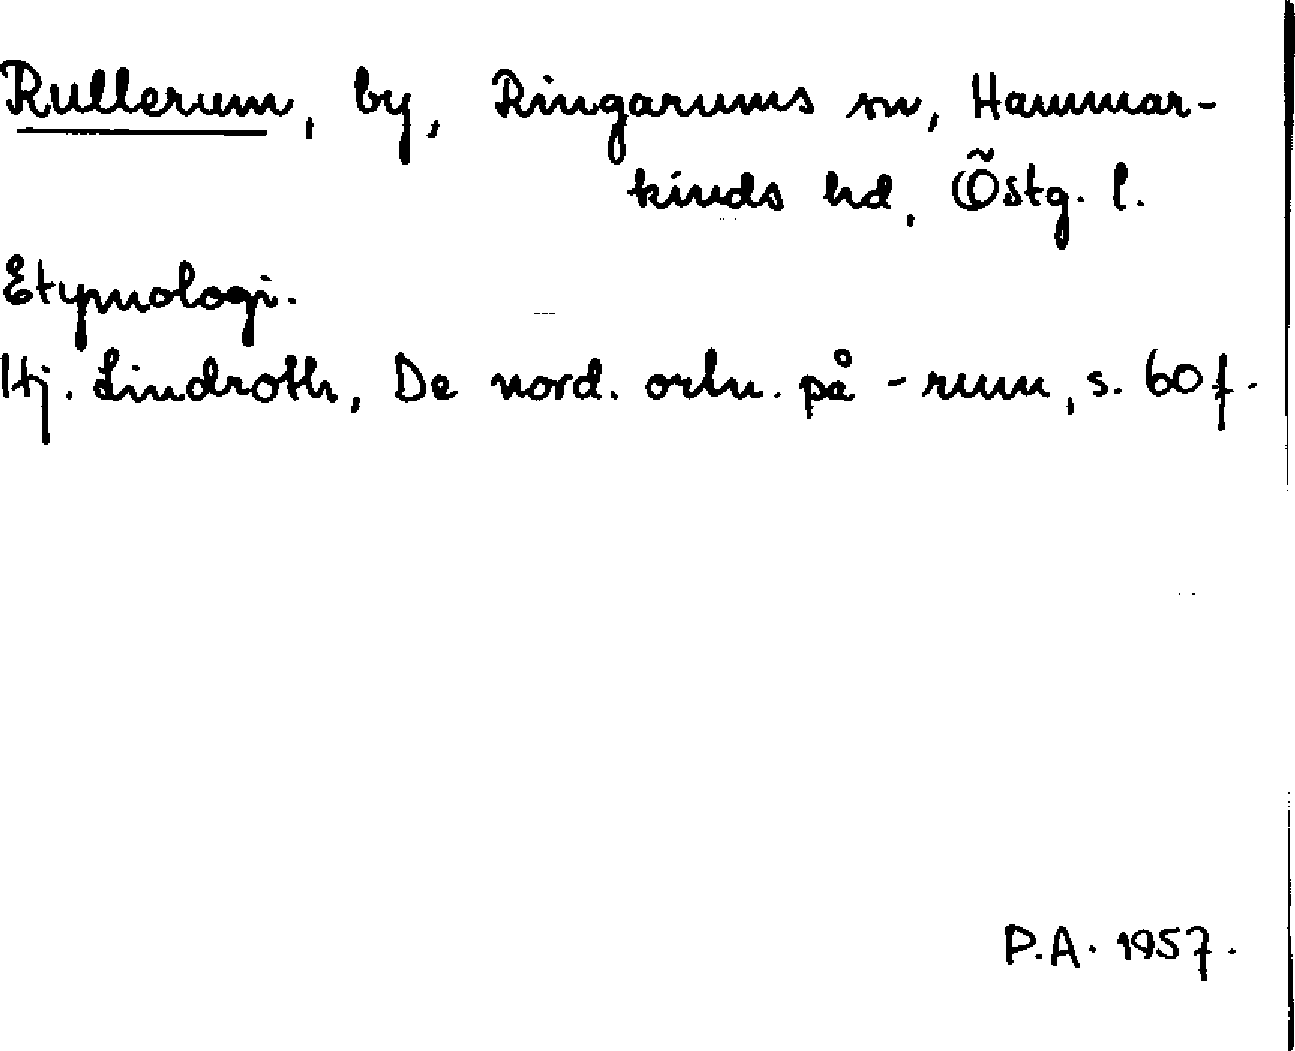 Rullerum, by, Ringarums sn, Hammar-
kinds hd, Östg. l.
Etymologi.
Hj. Lindroth, De nord. ortn. på -rum, s. 60 f.
P.A. 1957.